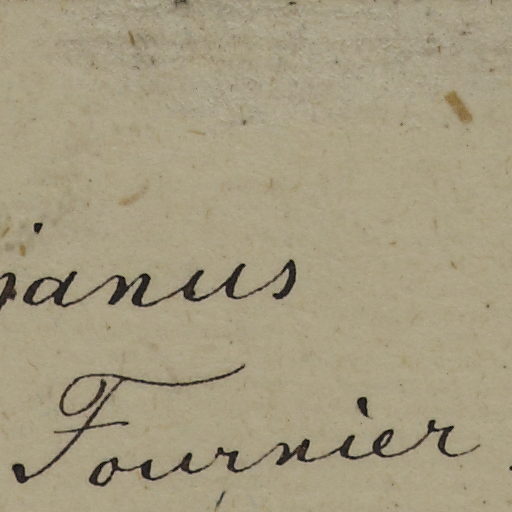 ianus
Fournier.